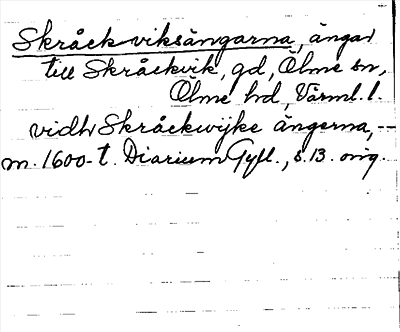 Skråckviksängarna, ängar
till Skråckvik, gd, Ölme sn,
Ölme hd, Värml. l.
vidh Skråckwijke ängerna, --
m. 1600-t. Diarium Gyll., s. 13. orig.